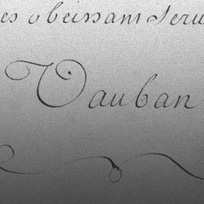 es obeissant seru
Vauban